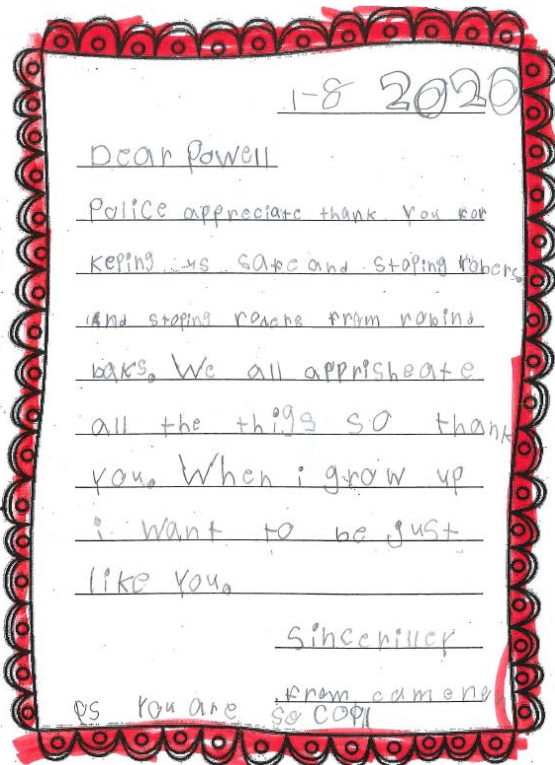 1-8 2020
Dear Powell
Police appreciate thank you for
Keping us safe and stoping robers
And stoping robers from robind
baks. We all apprisheate
all the thigs so thank
you. When i grow up
i want to be just
like you.
Sinceriller
from cameron
Ps You are so cool